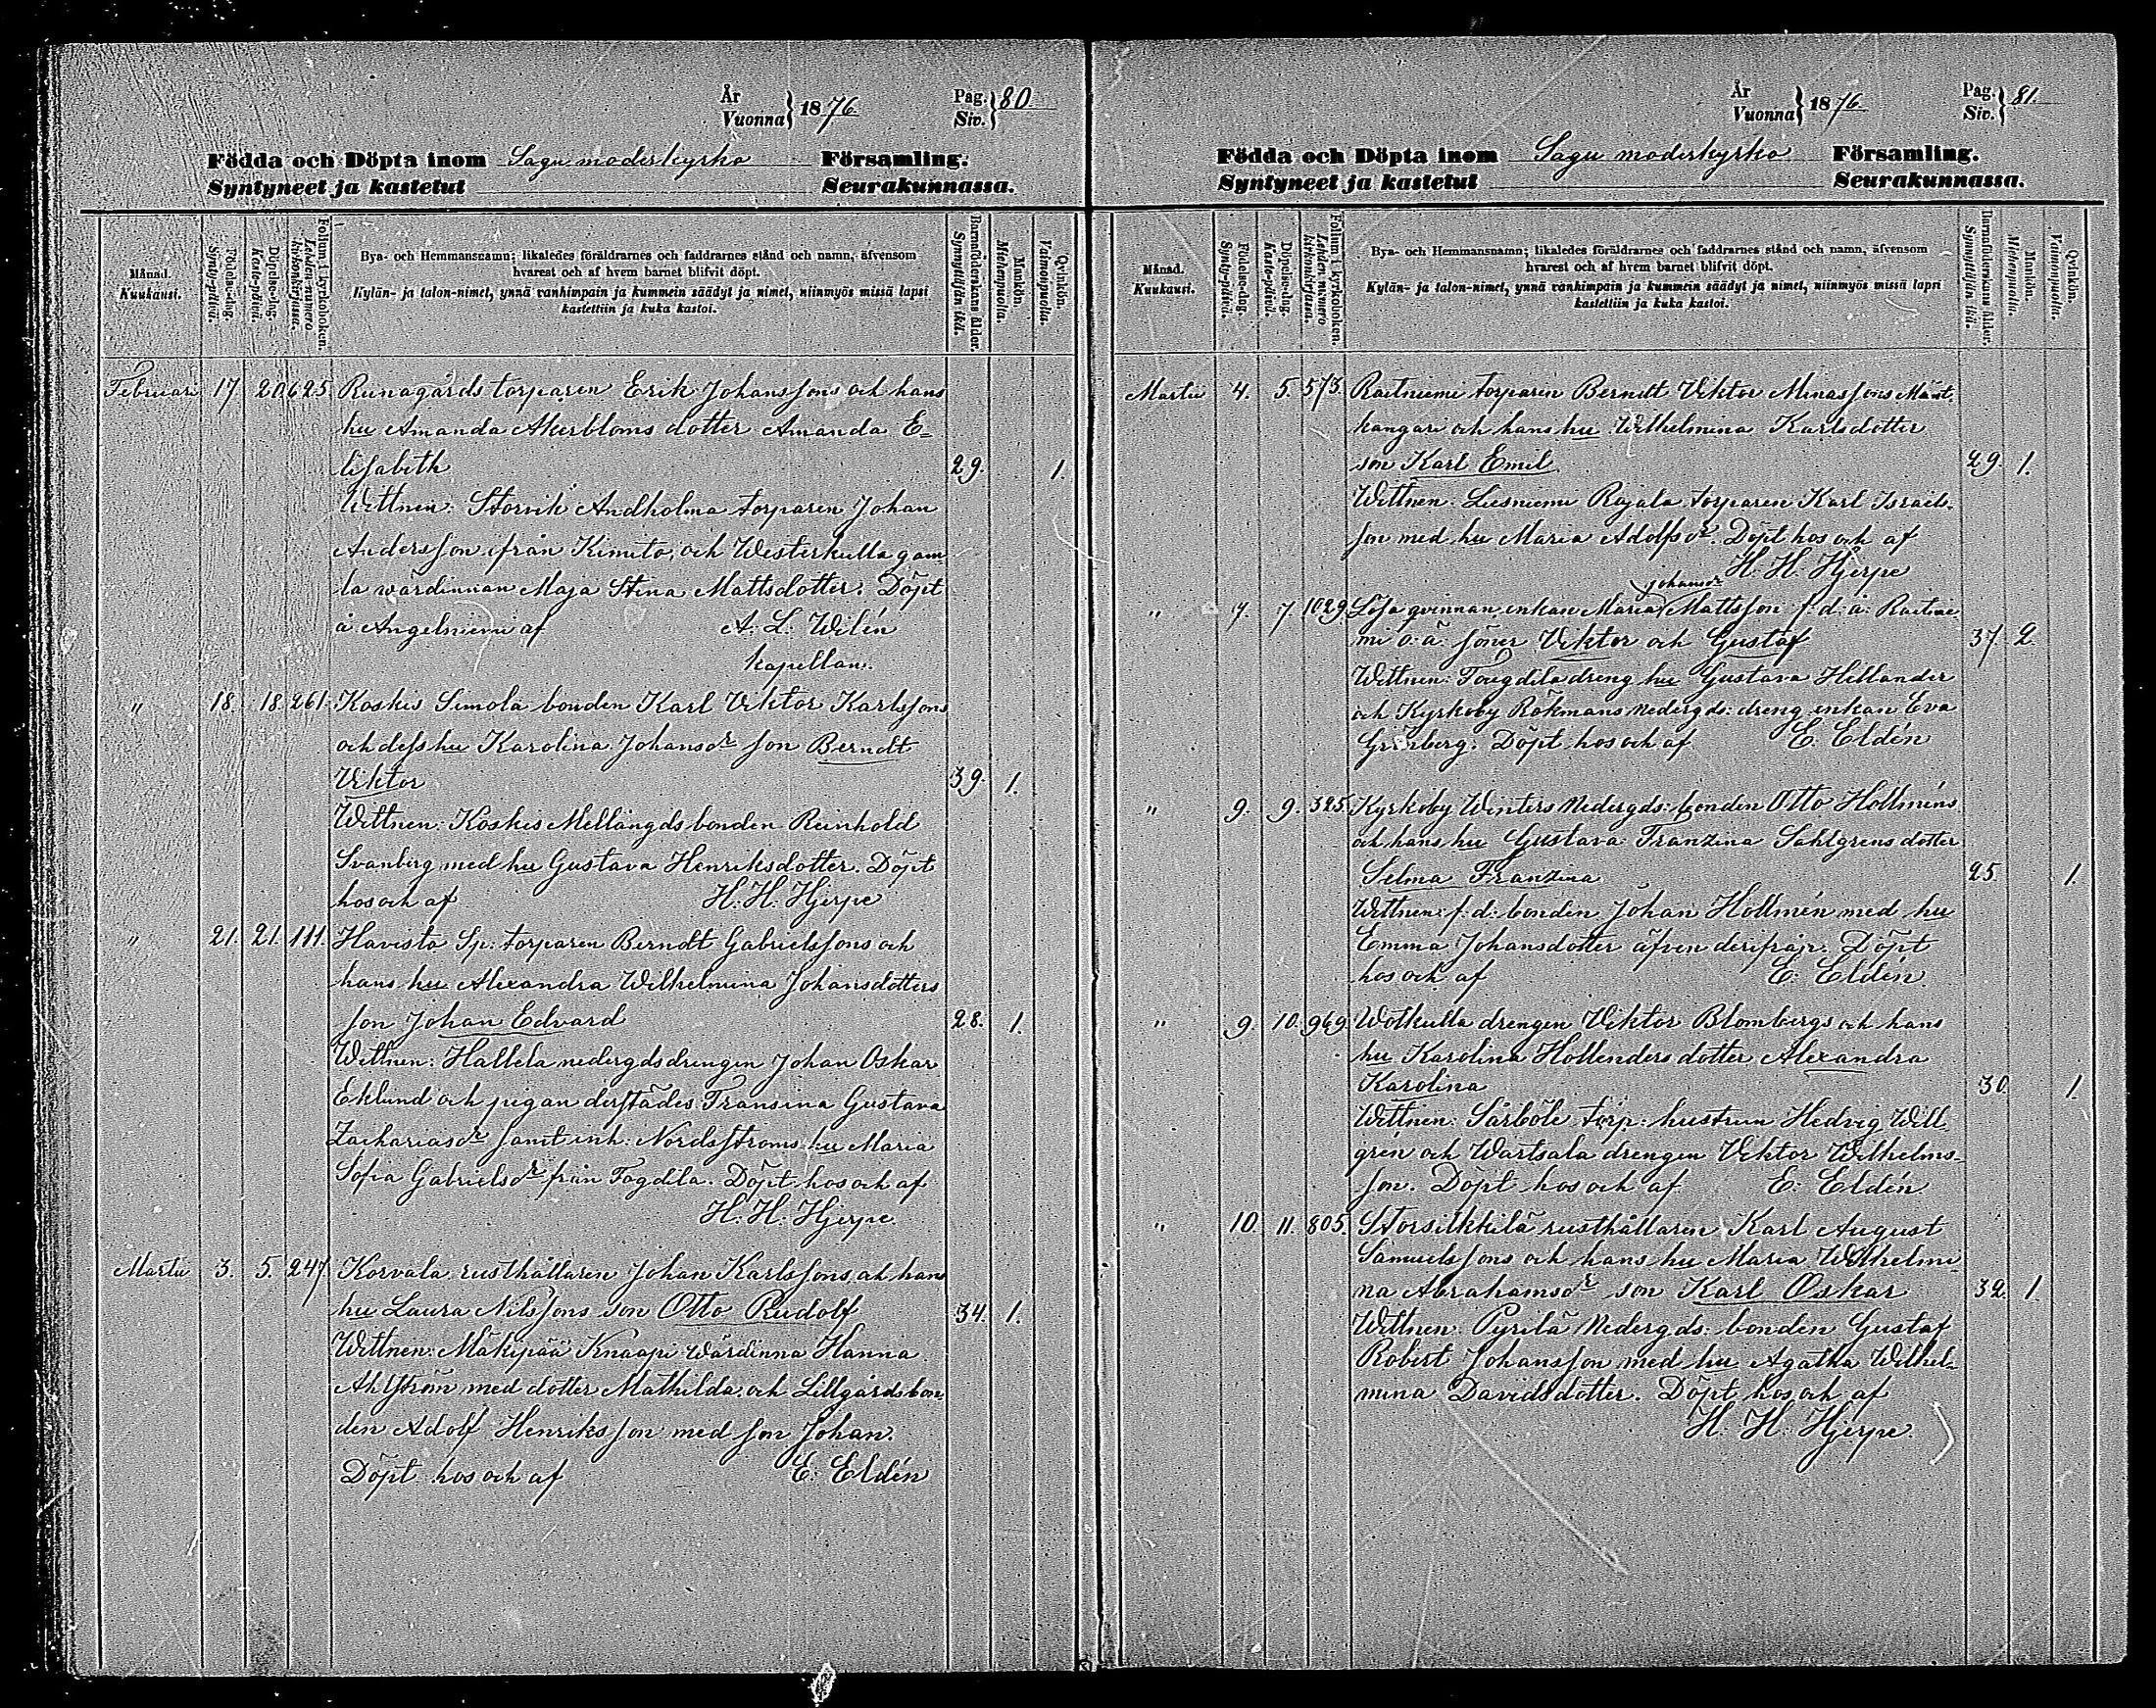 År
Vuonna } 1876.
Pag.
Siv. } 80.
Födda och Döpta inom Sagu moderkyrko Församling.
Syntyneet ja kastetut Seurakunnassa.
Månad.
Kuukausi.
Födelse-dag.
Synty-päivä.
Döpelse-dag.
Kaste-päivä.
Folium i kyrkoboken.
Lehden numero kirkonkirjassa.
Bya- och Hemmansnamn; likaledes föräldrarnes och faddrarnes stånd och namn, äfvensom
hvarest och af hvem barnet blifvit döpt.
Kylän- ja talon-nimet, ynnä vanhimpain ja kummein säädyt ja nimet, niinmyös missä lapsi
kastettiin ja kuka kastoi.
Barnaföderskans ålder.
Synnyttäjän ikä.
Mankön.
Miehenpuolia.
Qvinkön.
Vaimonpuolia.
Februari 17 20 625 Runagårds torparen Erik Johanssons och hans
hu Amanda Åkerbloms dotter Amanda E=
lisabeth 29. 1.
Wittnen: Storvik Andholma torparen Johan
Andersson ifrån Kimito, och Westerkulla gam-
la wärdinnan Maja Stina Mattsdotter. Döpt
å Angelniemi af A. L. Wilén
kapellan.
" 18. 18. 261. Koskis Simola bonden Karl Viktor Karlssons
och dess hu Karolina Johansdr son Berndt
Viktor 39. 1.
Wittnen: Koskis Mellangds bonden Reinhold
Svanberg med hu Gustava Henriksdotter. Döpt
hos och af H. H. Hjerpe
" 21. 21. 111. Havisto Sp: torparen Berndt Gabrielssons och
hans hu Alexandra Wilhelmina Johansdotters
son Johan Edvard 28. 1.
Wittnen: Hallela nedergds drengen Johan Oskar
Eklund och pigan derstädes Fransina Gustava
Zachariasdr samt inh: Nordsstroms hu Maria
Sofia Gabrielsdr från Togdila. Döpt hos och af
H. H. Hjerpe
Martii 3. 5. 247. Korvala rusthållaren Johan Karlssons och hans
hu Laura Nilssons son Otto Rudolf 34. 1.
Wittnen: Mäkipää Knaapi wärdinna Hanna
Ahlström med dotter Mathilda, och Lillgårds bon
den Adolf Henriksson med son Johan.
Döpt hos och af E. Eldén
År
Vuonna } 1876.
Pag.
Siv. } 81.
Födda och Döpta inom Sagu moderkyrko Församling.
Syntyneet ja kastetut Seurakunnassa.
Månad.
Kuukausi.
Födelse-dag.
Synty-päivä.
Döpelse-dag.
Kaste-päivä.
Folium i kyrkoboken.
Lehden numero kirkonkirjassa.
Bya- och Hemmansnamn; likaledes föräldrarnes och faddrarnes stånd och namn, äfvensom
hvarest och af hvem barnet blifvit döpt.
Kylän- ja talon-nimet, ynnä vanhimpain ja kummein säädyt ja nimet, niinmyös missä lapsi
kastettiin ja kuka kastoi.
Barnaföderskans ålder.
Synnyttäjän ikä.
Mankön.
Miehenpuolia.
Qvinkön.
Vaimonpuolia.
Martii 4. 5. 573. Raitniemi torparen Berndt Viktor Minassons Mänt-
kangari och hans hu Wilhelmina Karlsdotter
son Karl Emil 29. 1.
Wittnen: Liesniemi Rajala torparen Karl Israels-
son med hu Maria Adolfsdr. Döpt hos och af
H. H. Hjerpe
" 7. 7. 1029. Lösa qvinnan enkan Maria Johansdr Mattsson f: d: å: Raitnie
mi o: ä: söner Viktor och Gustaf 37 2.
Wittnen: Tougdila dreng hu Gustava Hellander
och Kyrkoby Rökmans nedergds: dreng enkan Eva
Grönberg. Döpt hos och af E. Eldén
" 9. 9. 325. Kyrkoby Winters Nedergds: bonden Otto Hollméns
och hans hu Gustava Franzina Sahlgrens dotter
Selma Franzina 25. 1.
Wittnen: f: d: bonden Johan Hollmén med hu
Emma Johansdotter äfven derifrån. Döpt
hos och af E. Eldén.
" 9. 10. 969. Wolkulla drengen Viktor Blombergs och hans
hu Karolina Hollenders dotter Alexandra
Karolina 30. 1.
Wittnen: Sårböle torp: hustrun Hedvig Will
grén och Wartsala drengen Viktor Wilhelms-
son. Döpt hos och af E. Eldén.
" 10. 11. 805. Storsilkkilä rusthållaren Karl August
Samuelssons och hans hu Maria Wilhelmi-
na Abrahamsdr son Karl Oskar 32. 1.
Wittnen: Pyrilä Nedergds: bonden Gustaf
Robert Johansson med hu Agatha Wilhel-
mina Davidsdotter. Döpt hos och af
H. H. Hjerpe.